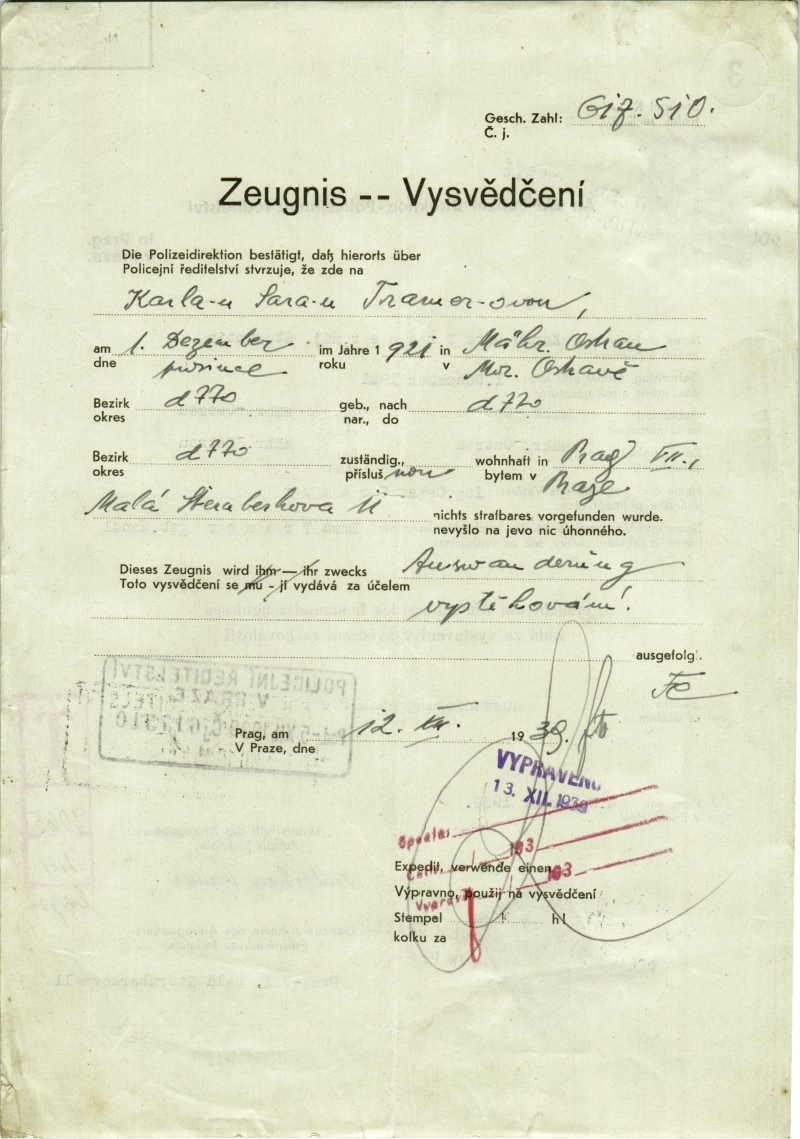 Gesch. Zahl:
Č. j.
Zeugnis -- Vysvědčení
Die Polizeidirektion bestätigt, daß hierorts über
Policejní ředitelství stvrzuje, že zde na
Karla-u Sara-u Tramer-ovou,
am 1. Dezember im Jahre 1921 in Mähr. Ostrau
dne prosince roku v Mor. Ostravě
Bezirk dtto geb., nach dtto
okres nar., do
Bezirk dtto zuständig., wohnhaft in Prag VII.,
okres příslušnou bytem v Praze
Malá 11 nichts strafbares vorgefunden wurde.
nevyšlo na jevo nic úhonného.
Dieses Zeugnis wird ihm — ihr zwecks Auswanderung
Toto vysvědčení se mu - jí vydává za účelem
vystěhování.
ausgefolg.
Prag, am 12. XII. 1939.
V Praze, dne
VYPRAVENO
13. XII. 1939
Opsáno
193
Expedit, verwende einen
193
Výpravno, použij na vysvědčení
Stempel h!
kolku za
POLICEJNÍ ŘEDITELSTVÍ
V PRAZE